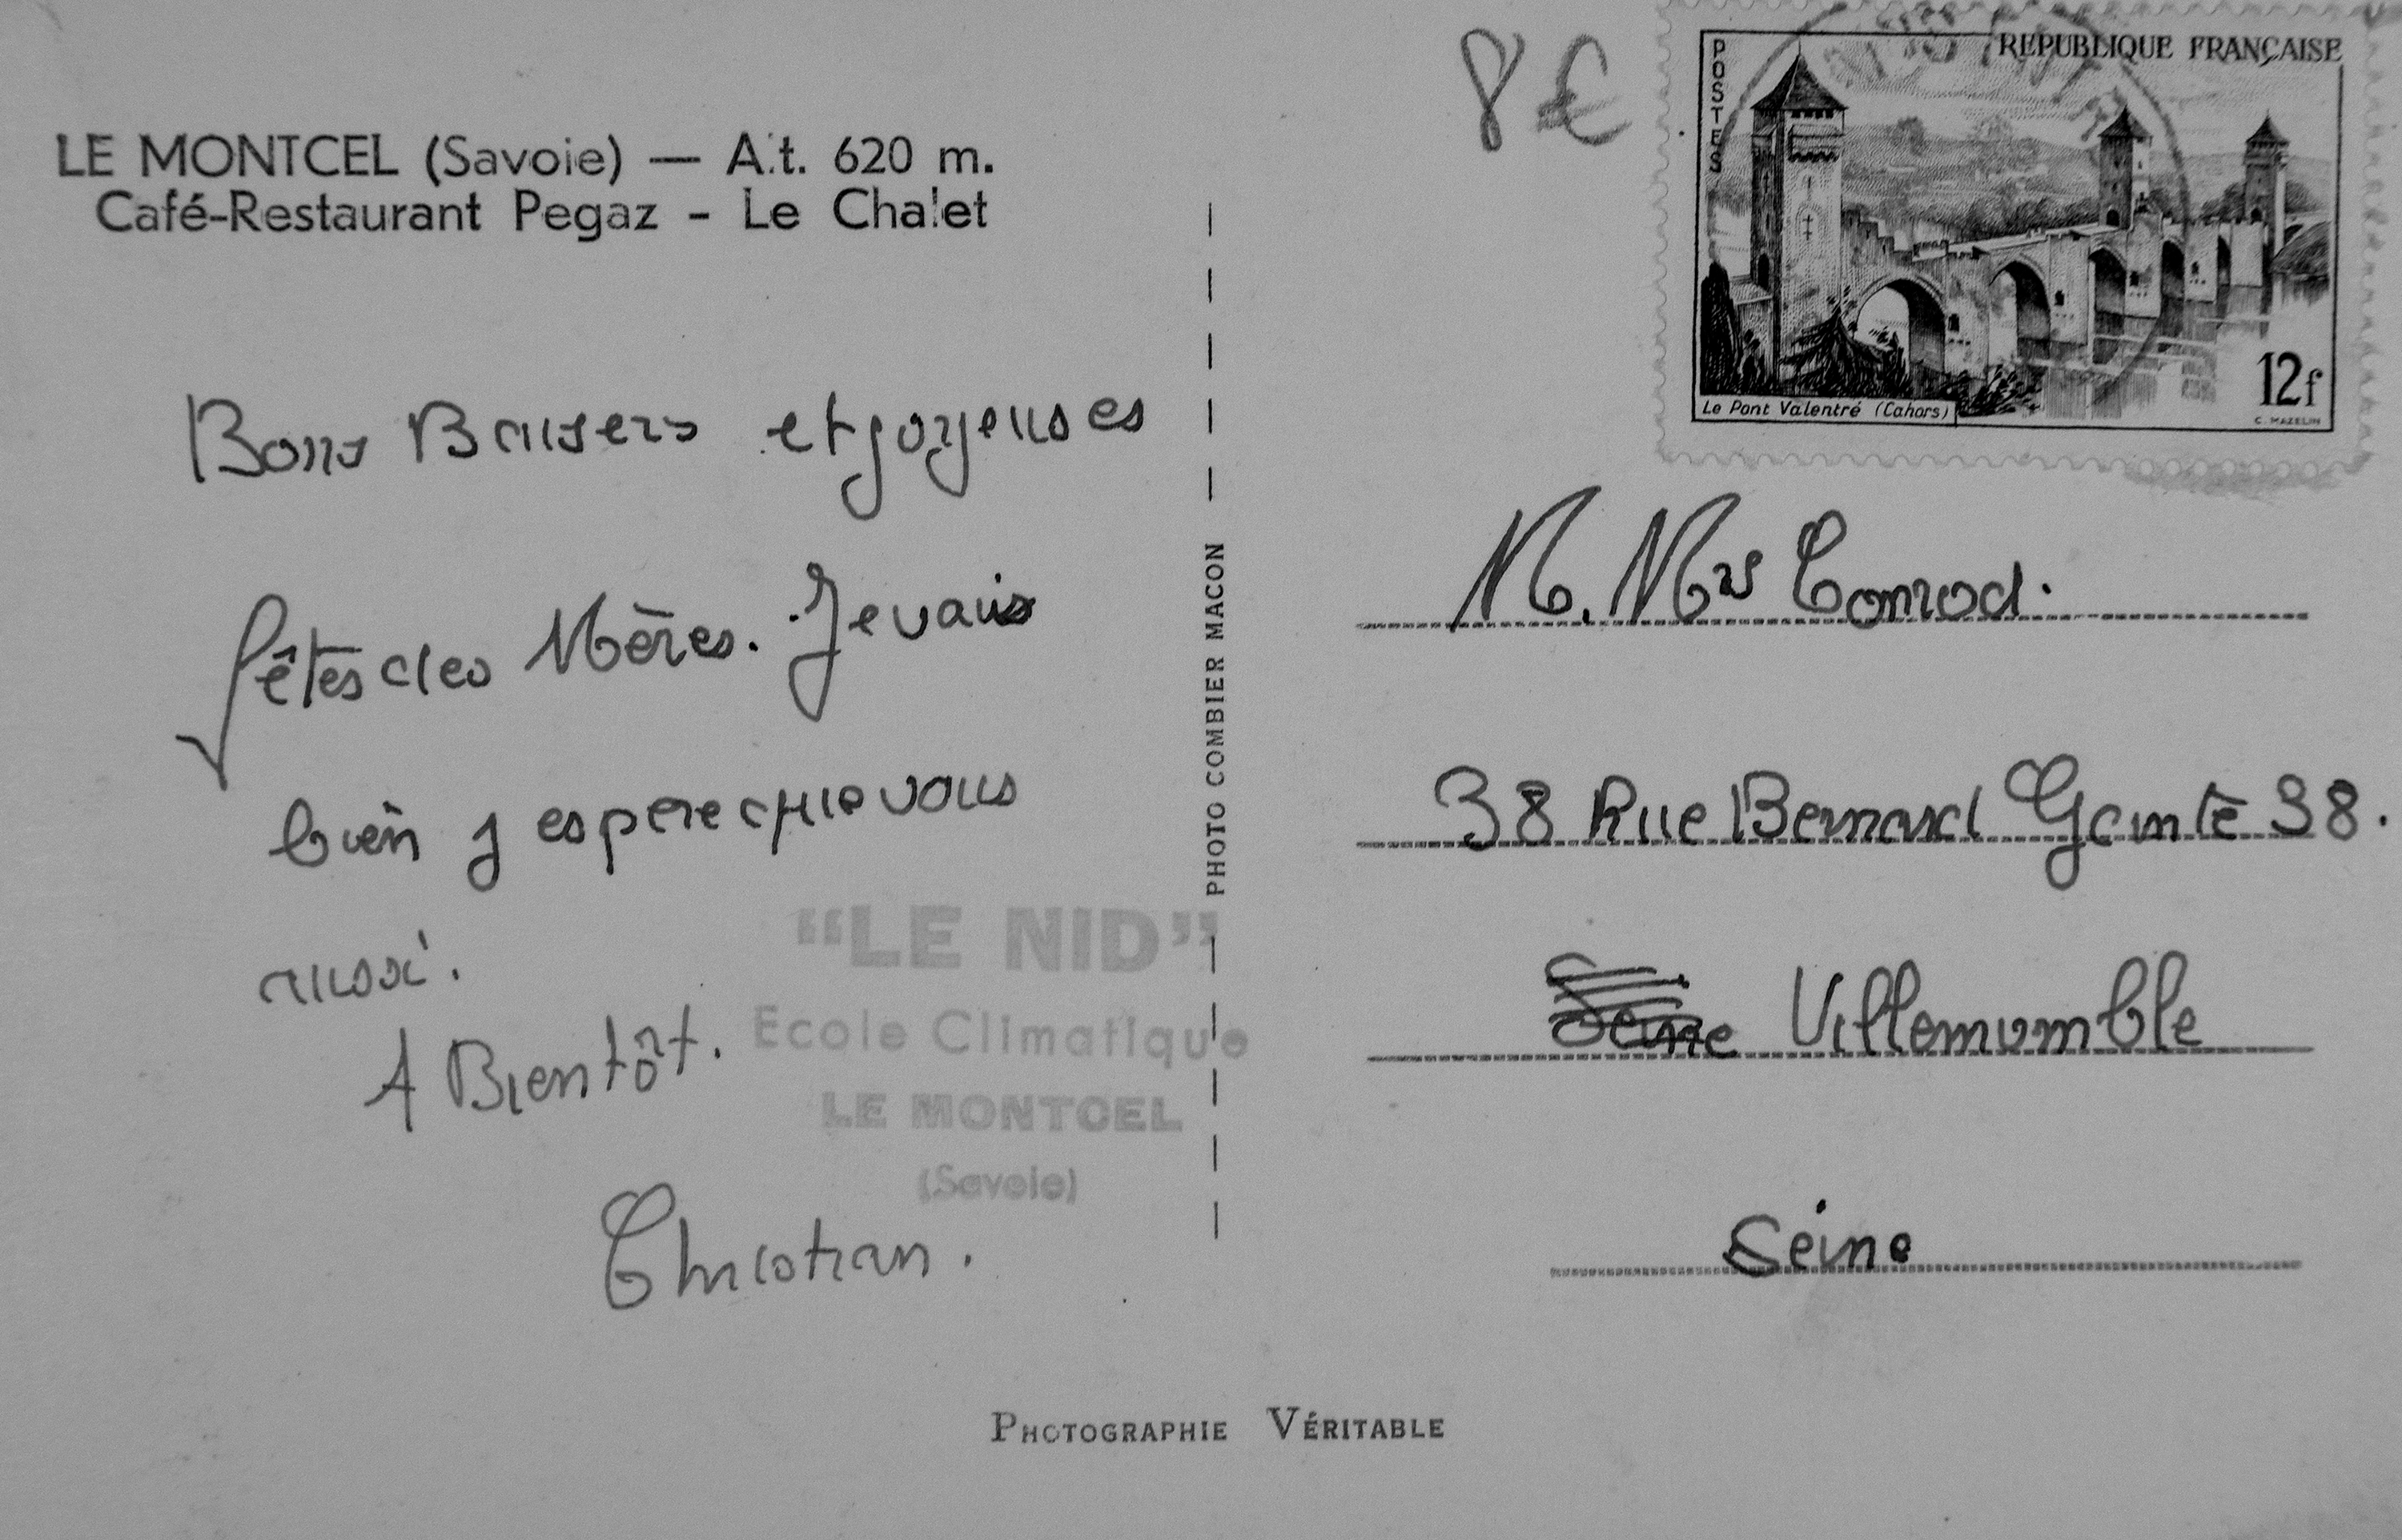 LE MONTCEL (Savoie) — Alt. 620 m.
Café-Restaurant Pegaz - Le Chalet
Bons Baisers et joyeuses
fêtes des Mères. Je vais
bien j espere que vous
aussi.
A Bientôt.
Christian.
"LE NID"
Ecole Climatique
LE MONTCEL
(Savoie)
PHOTO COMBIER MACON
PHOTOGRAPHIE VÉRITABLE
8€
POSTES
REPUBLIQUE FRANÇAISE
12f
Le Pont Valentré (Cahors)
C. MAZELIN
M. Mrs Conrod.
38 Rue Bernard Gante 38.
Seine Villemomble
Seine